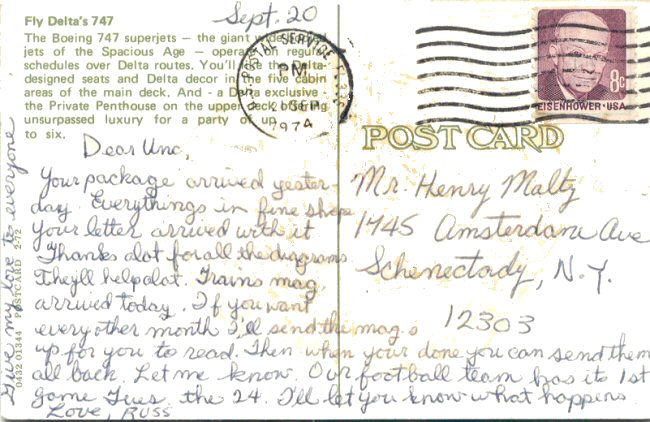 Sept. 20
Fly Delta's 747
The Boeing 747 superjets — the giant wide-
jets of the Spacious Age — operate on regular
schedules over Delta routes. You'll the Delta-
designed seats and Delta decor in the five cabin
areas of the main deck. And - a Delta exclusive -
the Private Penthouse on the upper deck offering
unsurpassed luxury for a party of up
to six.
U.S. POSTAL SERVICE
PM
SEP
1974
8c
EISENHOWER·USA
POST CARD
Dear Unc,
Your package arrived yester-
day. Everythings in fine shape
Your letter arrived with it
Thanks alot for all the diagrams
They'll help alot. Trains mag,
arrived today. If you want
every other month I'll send the mag.s
up for you to read. Then when your done you can send them
all back. Let me know. Our football team has its 1st
game Tues. the 24. I'll let you know what happens
Love, Russ
Give my love to everyone
0432 01344 POSTCARD 2-72
Mr. Henry Maltz
1745 Amsterdam Ave
Schenectady, N.Y.
12303